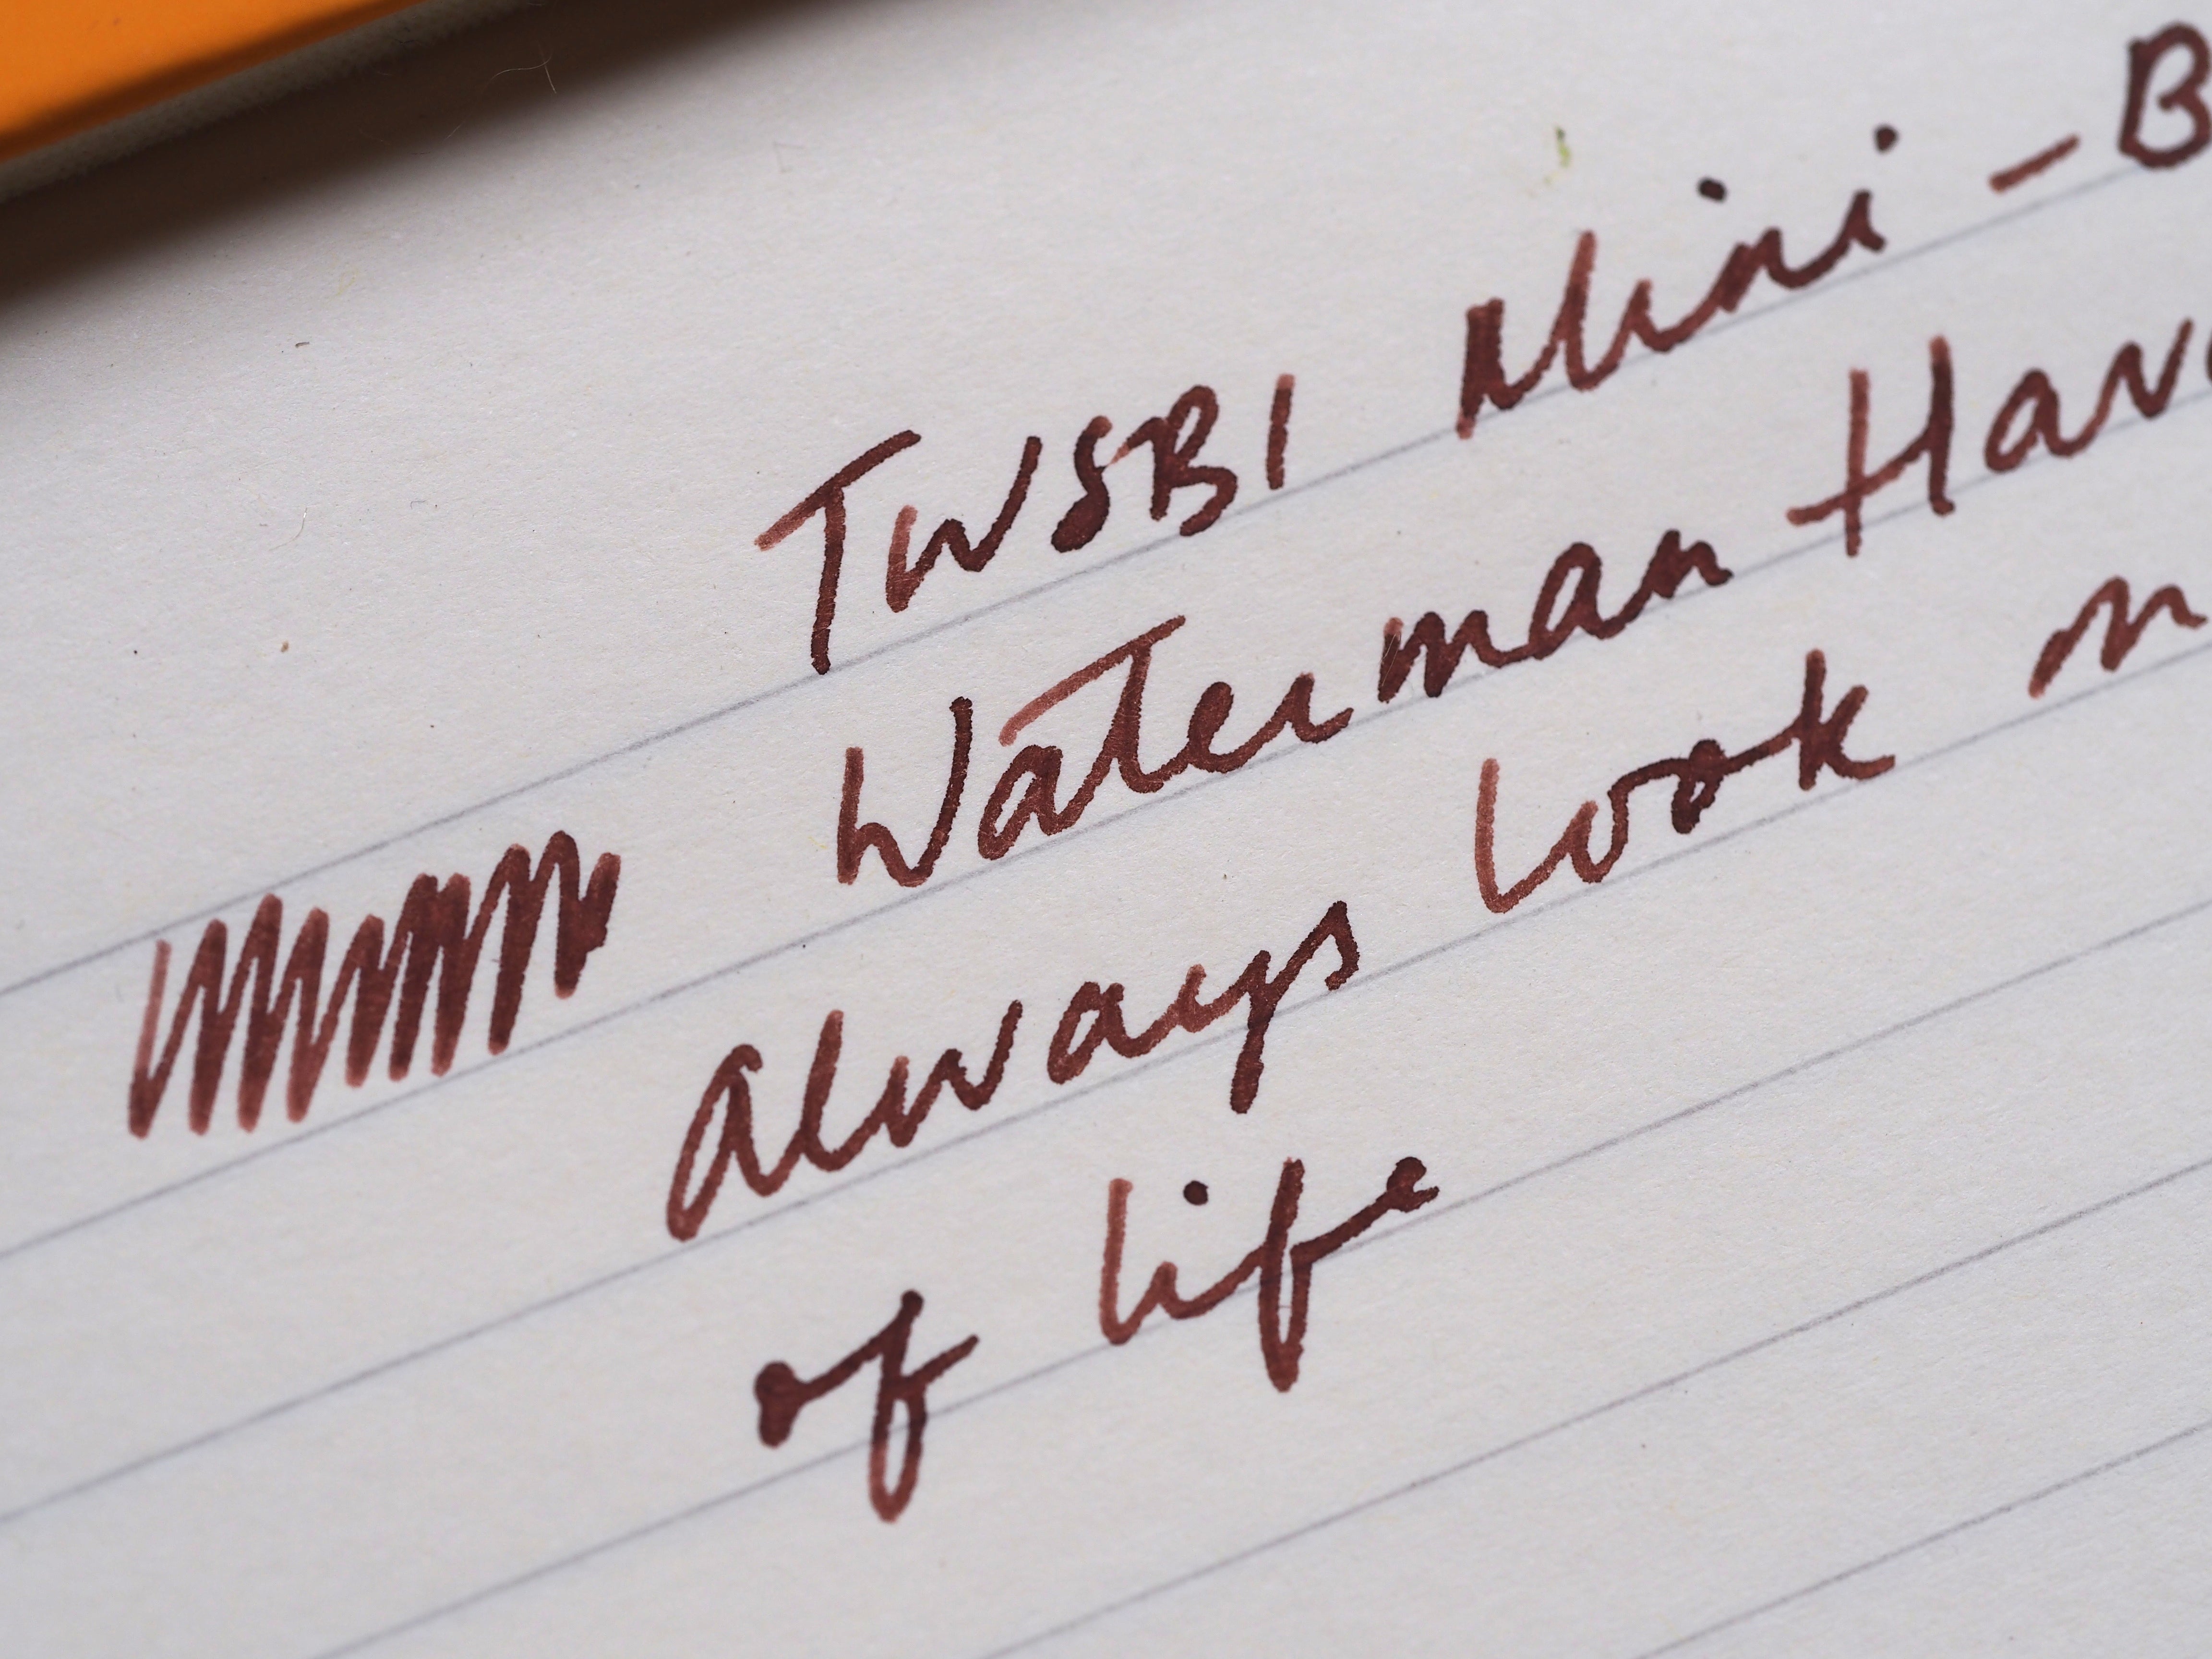 TWSBI Mini - B
Waterman Hava
always look
of life